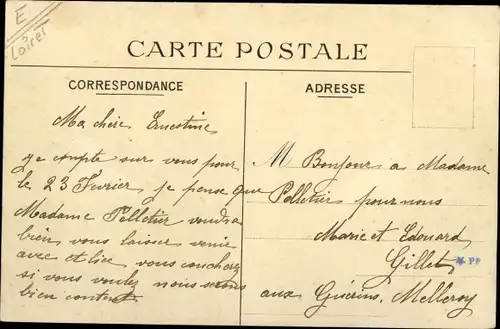 E
Loiret
CARTE POSTALE
CORRESPONDANCE
ADRESSE
Ma chère Ernestine
Je compte sur vous pour
le 23 Février je pense que
Madame Pelletier voudra
bien vous laisser venir
avec
si vous voulez nous serons
bien content
M Bonjour a Madame
Pelletier pour nous
Marie et Edouard
Gillet
aux Guérins, Melleroy
PP